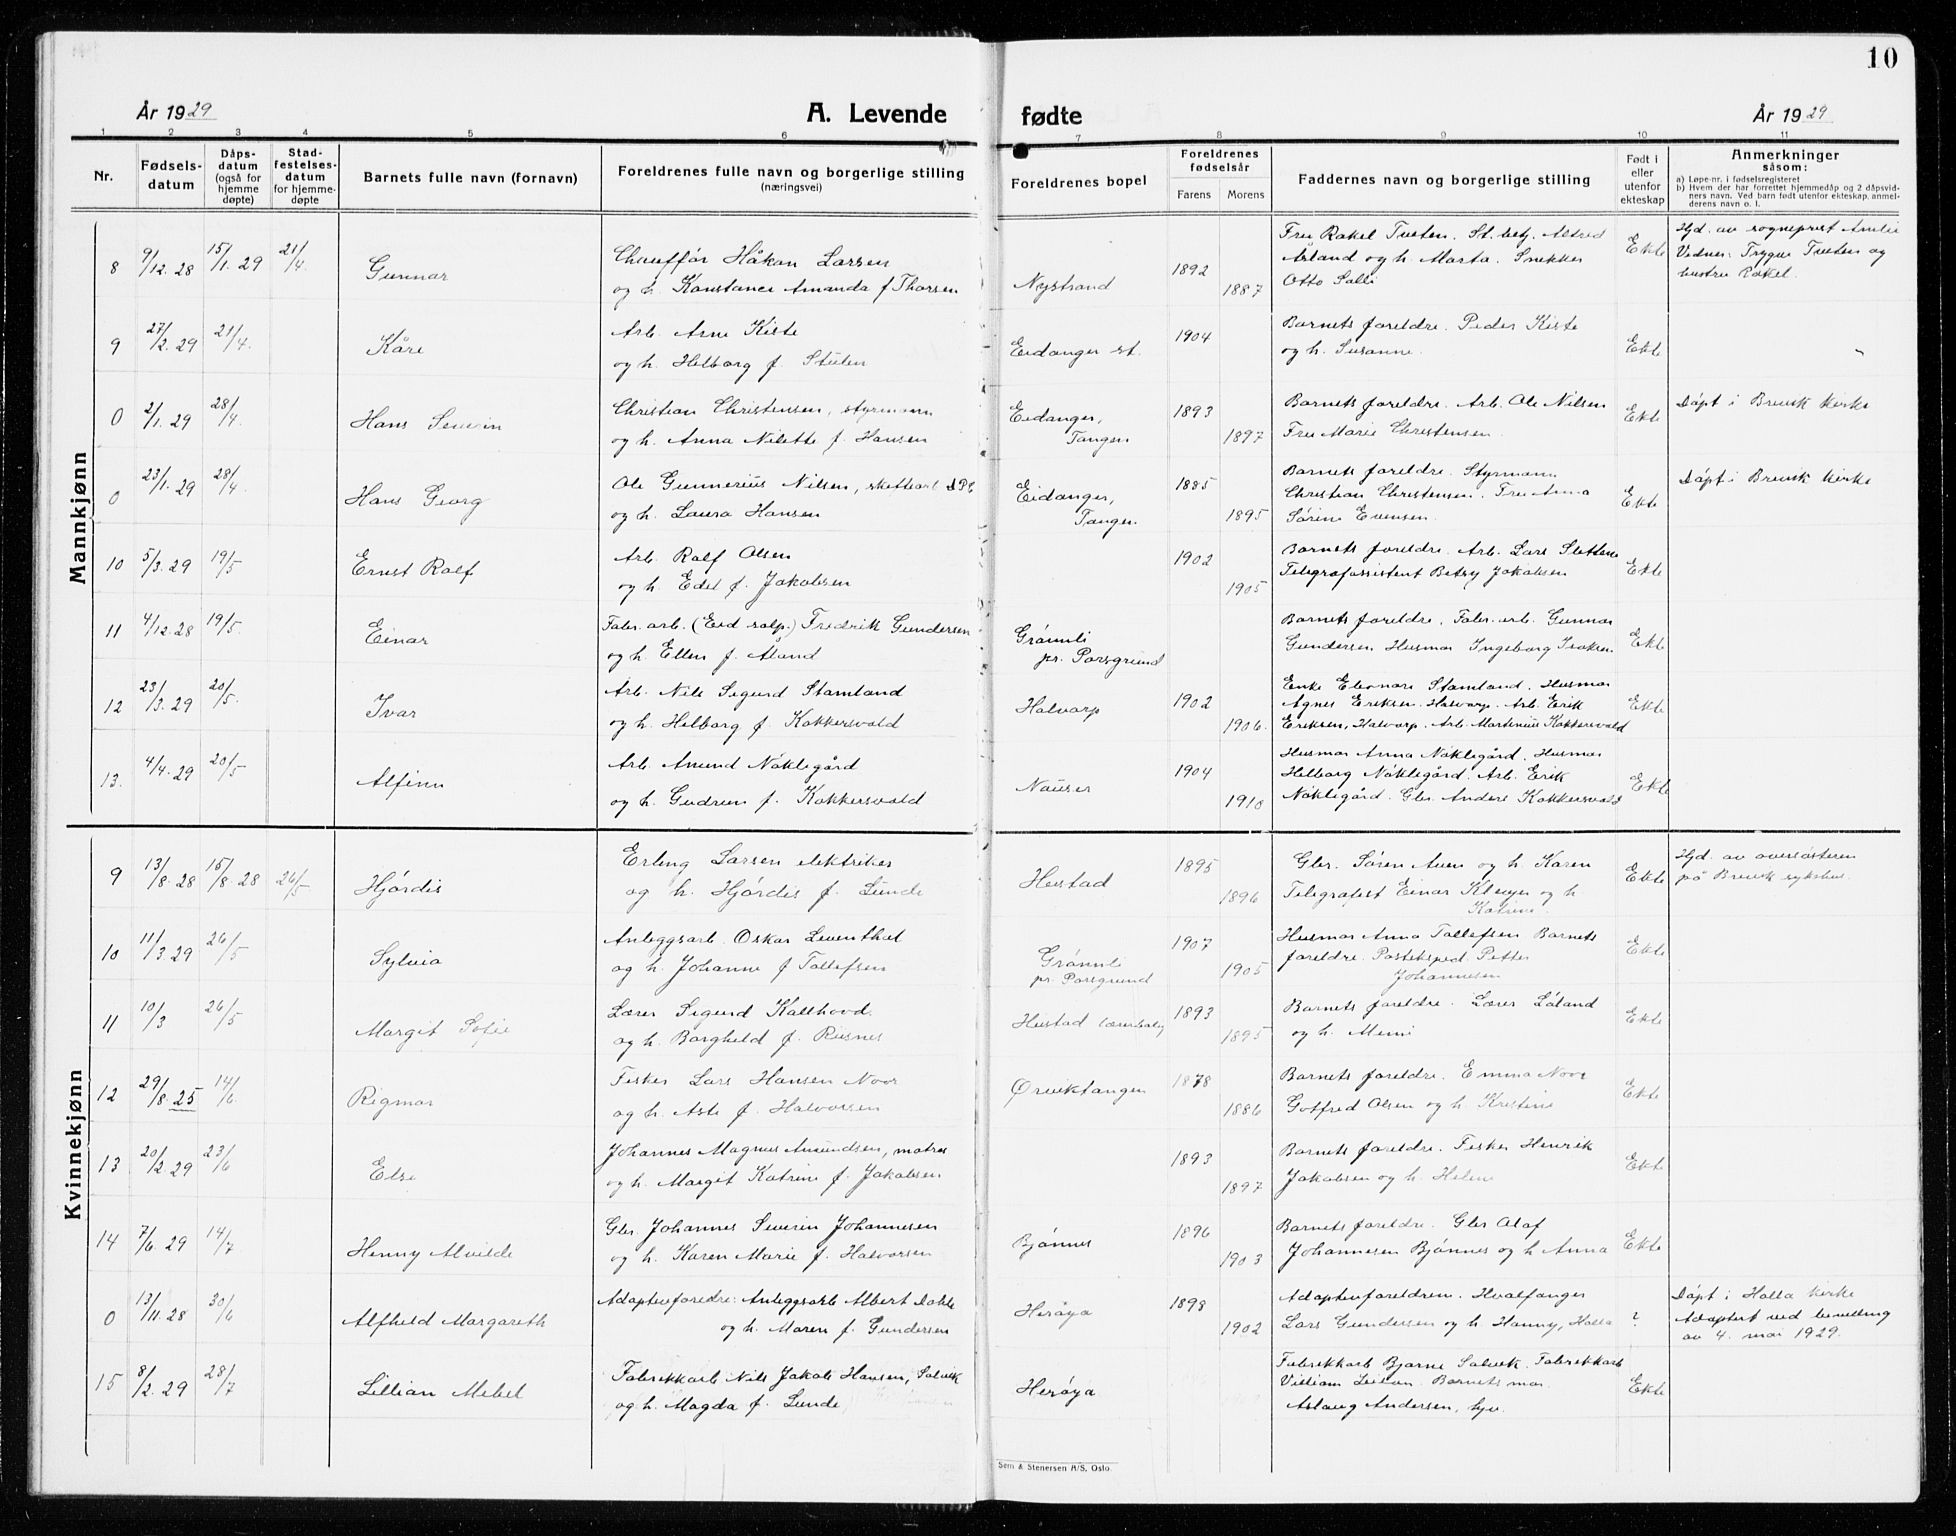 10
År 1929
A. Levende
fødte
År 1929
1 2 3 4 5 6 7 8 9 10 11
Nr.
Fødsels-
datum
Dåps-
datum
(også for
hjemme
døpte)
Stad-
festelses-
datum
for hjemme-
døpte
Barnets fulle navn (fornavn)
Foreldrenes fulle navn og borgerlige stilling
(næringsvei)
Foreldrenes bopel
Foreldrenes
fødselsår
Farens Morens
Faddernes navn og borgerlige stilling
Født i
eller
utenfor
ekteskap
Anmerkninger
såsom:
a) Løpe-nr. i fødselsregisteret
b) Hvem der har forrettet hjemmedåp og 2 dåpsvid-
ners navn. Ved barn født utenfor ekteskap, anmel-
derens navn o. l.
Mannkjønn
8 9/12. 28 15/1. 29 21/4. Gunnar
Chauffør Håkan Larsen
og h. Konstance Amanda f Thorsen
Nystrand 1892 1887
Fru Rakel Tveten. St. betj. Alfred
Åsland og h. Marta. Snekker
Otto Salli
Ekte
Hjd. av sogneprest Amlie
Vidner: Trygve Tveten og
hustru Rakel.
9 27/2. 29 21/4. Kåre
Arb. Arne Kiste
og h. Helborg f. Stulen
Eidanger st. 1904
Barnets foreldre. Peder Kiste
og h. Susanne.
Ekte
0 2/1. 29 28/4. Hans Severin
Christian Christensen, styrmann
og h. Anna Nilette f. Hansen
Eidanger,
Tangen
1893 1897
Barnets foreldre. Arb. Ole Nilsen
Fru Marie Christensen.
Ekte
Døpt i Brevik kirke
0 23/1. 29 28/4. Hans Georg
Ole Gunnerius Nilsen,
og h. Laura Hansen
Eidanger,
Tangen
1885 1895
Barnets foreldre. Styrmann
Christian Christensen. Fru Anna
Sørine Evensen.
Ekte
Døpt i Brevik kirke
10 5/3. 29 19/5 Ernst Ralf
Arb. Ralf Olsen
og h. Edel f. Jakobsen
1902 1905
Barnets foreldre. Arb. Lars Slettene
Telegrafassistent Betsy Jakobsen
Ekte
11 4/12. 28 19/5. Einar
Fabr. arb. (Eid salp.) Fredrik Gundersen
og h. Ellen f. Åland
Grønnli
pr. Porsgrund
Barnets foreldre. Fabr. arb. Gunnar
Gundersen Husmor Ingeborg Isaksen
Ekte
12 23/3. 29 20/5. Ivar
Arb. Nils Sigurd Stamland
og h. Helborg f. Kokkersvold
Halvarp 1902 1906.
Enke Eleonore Stamland. Husmor
Agnes Eriksen. Halvarp. Arb. Erik
Eriksen, Halvarp. Arb. Martinius Kokkersvold
Ekte
13. 4/4. 29 20/5 Alfinn
Arb. Amund Nøklegård
og h. Gudrun f. Kokkersvold
Nauser 1904 1910
Husmor Anna Nøklegård. Husmor
Helborg Nøklegård. Arb. Erik
Nøklegård. Gbr. Anders Kokkersvold
Ekte
Kvinnekjønn
9 13/8. 28 15/8. 28 26/5 Hjørdis
Erling Larsen elektriker
og h. Hjørdis f. Lunde
Heistad 1895 1896
Gbr. Søren Auen og h. Karen
Telegrafist Einar Kleiven og h
Katrine.
Ekte
Hjd. av oversøsteren
på Brevik sykehus.
10 11/3. 29 26/5 Sylvia
Anleggsarb. Oskar Leventhal
og h. Johanne f Tollefsen
Grønnli
pr. Porsgrund
1907 1905
Husmor Anna Tollefsen Barnets
foreldre. Posteksped. Petter
Johannesen
Ekte
11 10/3 26/5 Margit Sofie
Lærer Sigurd Kallhovd.
og h. Borghild f. Rusnes
Heistad lærerbolig 1893 1895
Barnets foreldre. Lærer Låland
og h. Mimi
Ekte
12 29/8. 25 14/6. Rigmor
Fisker Lars Hansen Noor
og h. Aste f. Halvorsen
Ørviktangen 1878 1886
Barnets foreldre. Emma Noor
Gotfred Olsen og h. Kristine
Ekte
13 20/2. 29 23/6 Else
Johannes Magnus Amundsen, matros
og h. Margit Katrine f. Jakobsen
1893 1897
Barnets foreldre. Fisker Henrik
Jakobsen og h. Helene
Ekte
14 7/6. 29 14/7 Henny Alvilde
Gbr. Johannes Severin Johannesen
og h. Karen Marie f. Halvorsen
Bjønnes 1896 1903
Barnets foreldre. Gbr. Olaf
Johannesen Bjønnes og h Anna
Ekte
0 13/11. 28 30/6 Alfhild Margareth
Adoptivforeldre: Anleggsarb Albert Dokke
og h. Maren f. Gundersen
Herøya 1898 1902
Adoptivforeldrene. Hvalfanger
Lars Gundersen og h. Hanny, Holla
?
Døpt i Holla kirke
Adoptert ved bevilling
av 4. mai 1929.
15 8/2. 29 28/7 Lillian Mebel
Fabrikkarb Nils Jakob Hansen, Salvik
og h. Magda f. Lunde
Herøya
Fabrikkarb Bjarne Salvik. Fabrikkarb
Barnets mor.
Aslaug Andersen,
Ekte
Sem & Stenersen A/S, Oslo.